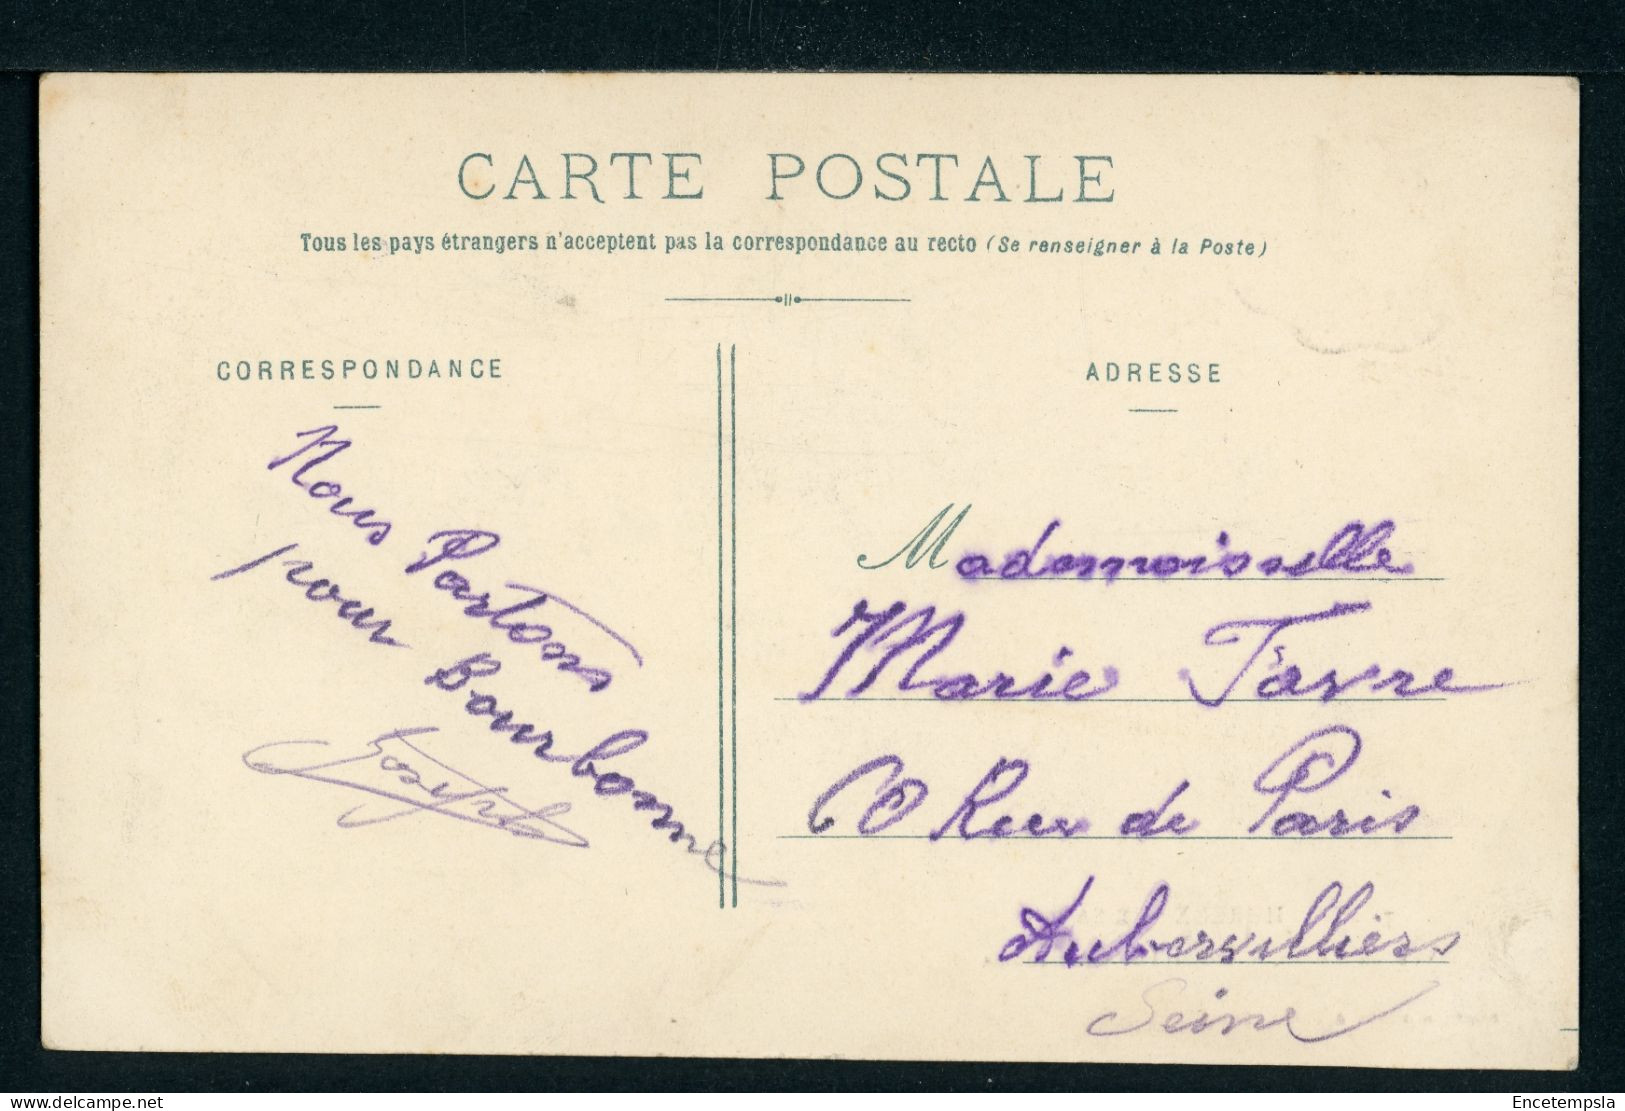 CARTE POSTALE
Tous les pays étrangers n'acceptent pas la correspondance au recto (Se renseigner à la Poste)
CORRESPONDANCE
Nous Partons
pour Bourbonne
Joseph
ADRESSE
Mademoiselle
Marie Favre
60 Rue de Paris
Aubervilliers
Seine
www.delcampe.net
Encetempsla